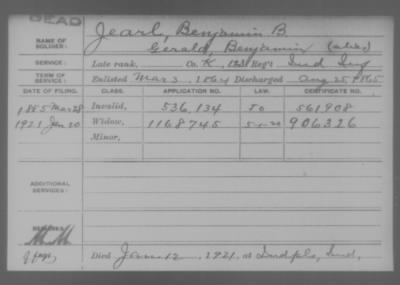 DEAD
NAME OF SOLDIER: Jearl, Benjamin B.
Gerald, Benjamin (alias)
SERVICE: Late rank, Co. K, 123 Reg't Ind Inf
TERM OF SERVICE: Enlisted Mar 3, 1864 Discharged Aug. 25, 1865
DATE OF FILING. CLASS. APPLICATION NO. LAW. CERTIFICATE NO.
1885 Mar 28 Invalid, 536,134 561908
1921 Jan 20 Widow, 1168745 5-1-20 906326
Minor,
ADDITIONAL SERVICES:
REMARKS:
Died Jan. 12, 1921, at Indpls, Ind.